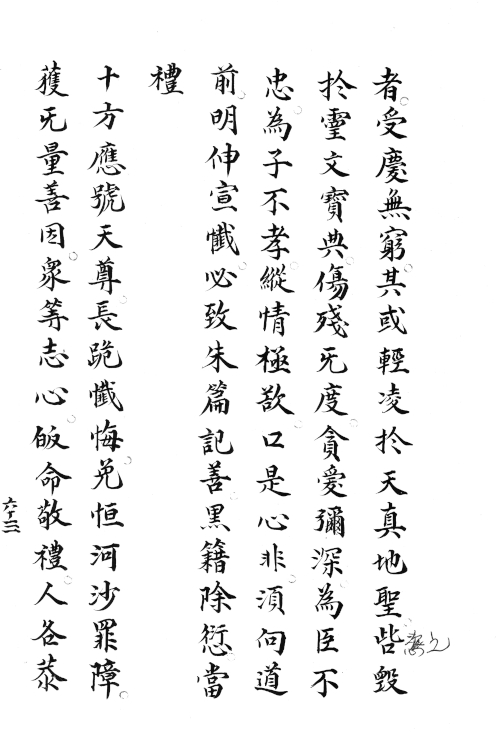 者受慶無窮其或輕凌扵天真地聖呰毀
扵霊文寳典傷殘旡度貪愛彌深為臣不
忠為子不孝縱情極欲口是心非湏向道
前明伸宣懺必致朱篇記善黒籍除愆當
禮
十方應號天尊長跪懺悔免恒河沙罪障
獲旡量善因衆等志心皈命敬禮人各恭
六十三